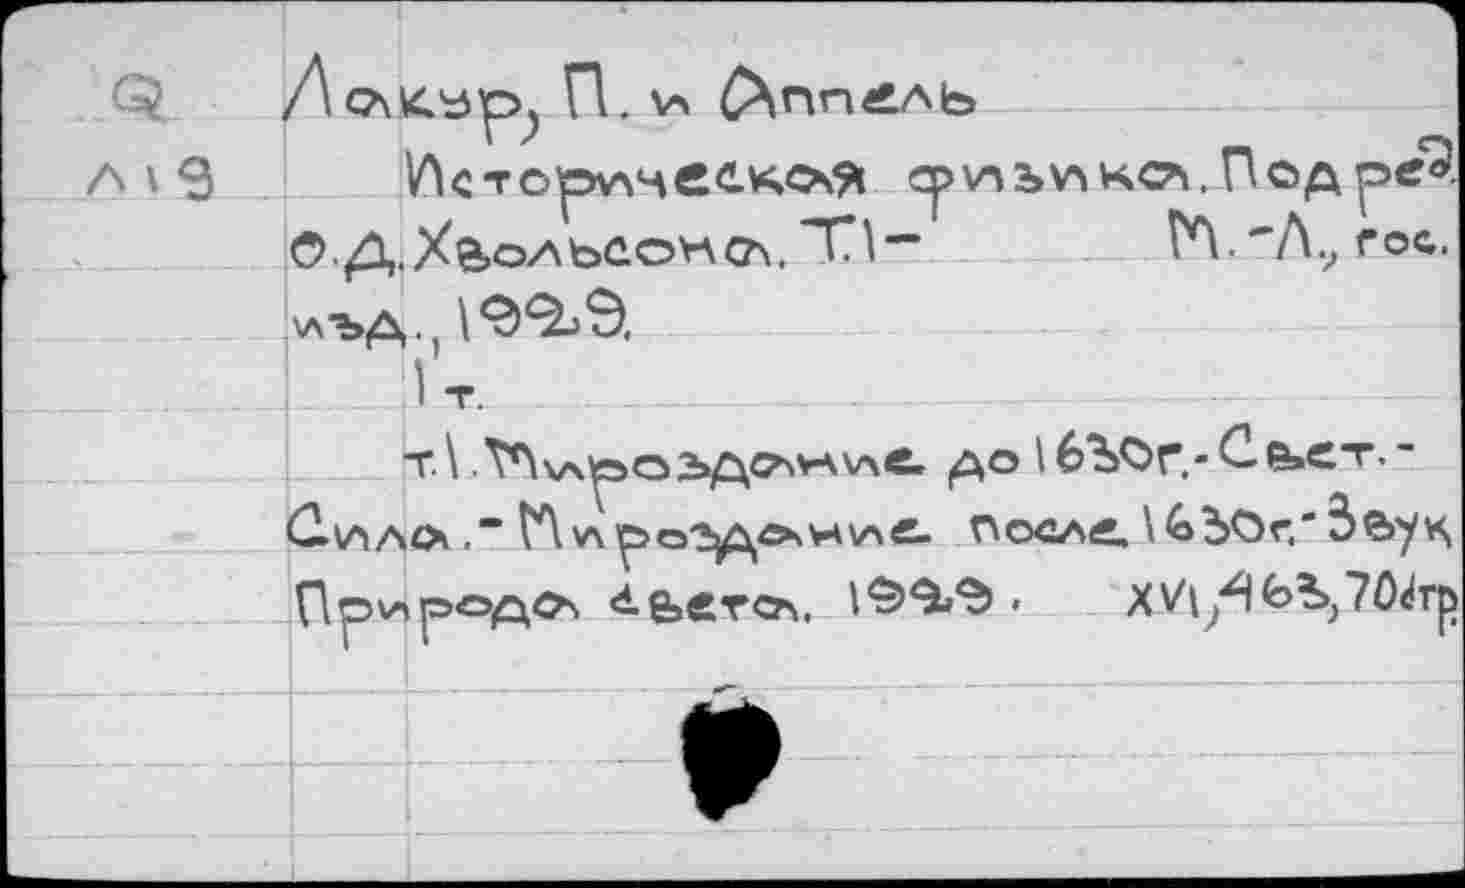 Q Лакур, П. и Аппель
Л19 Историческая физика. Под ред.
О.Д. Хвольсона. Т.1- М.-Л., гос.
изд., 1929.
1 т.
т.1. Мироздание до 1630г.-Свет.-
Сила.-Мироздание после 1630г.-Звук
Природа света. 1929. XVI, 463, 70стр.